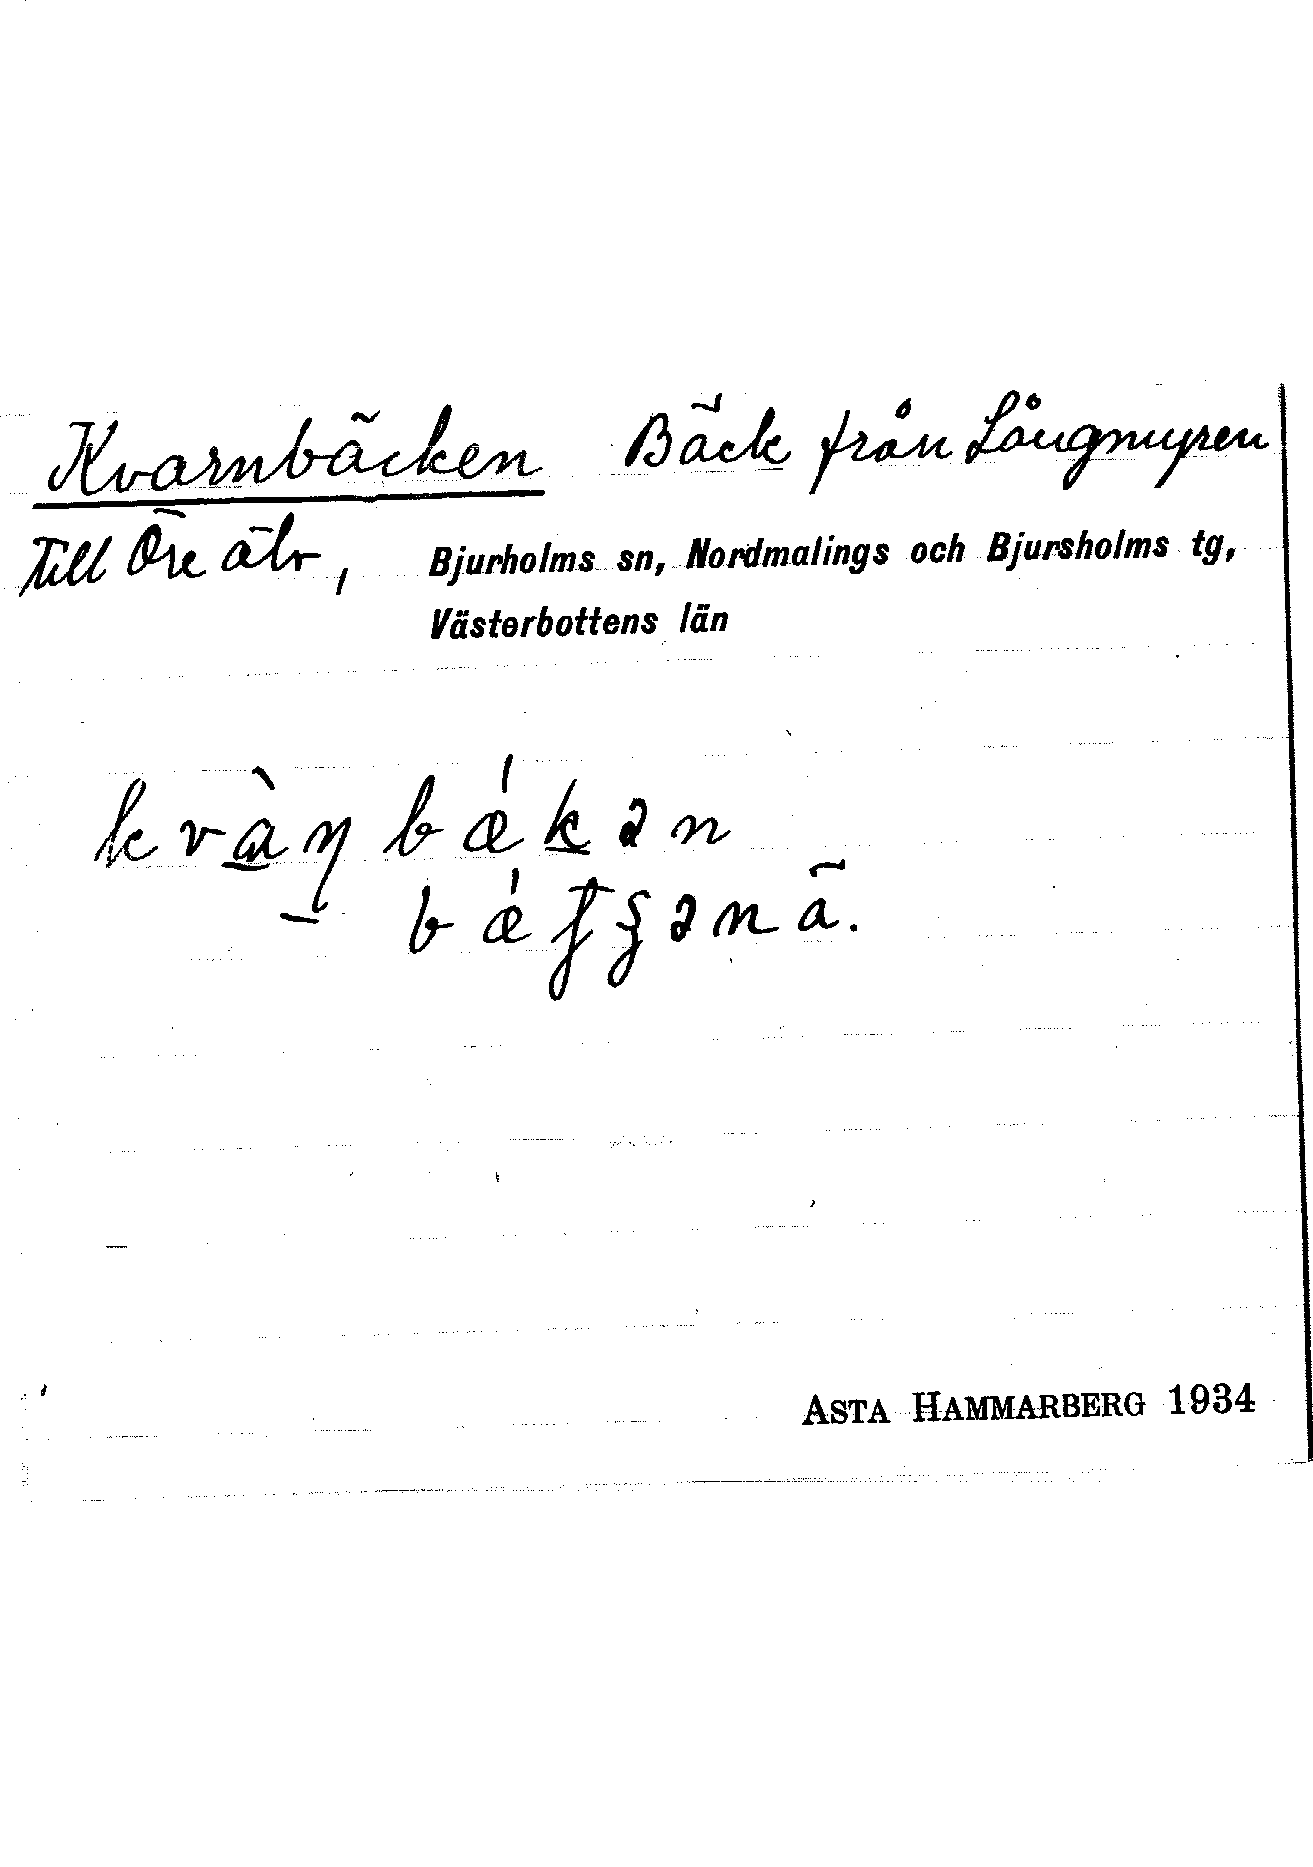 Kvarnbäcken Bäck från Långmyren
till Öre älv, Bjurholms sn, Nordmalings och Bjursholms tg,
Västerbottens län
kvàɳbǽkən
— bǽʄʂənä.
ASTA HAMMARBERG 1934